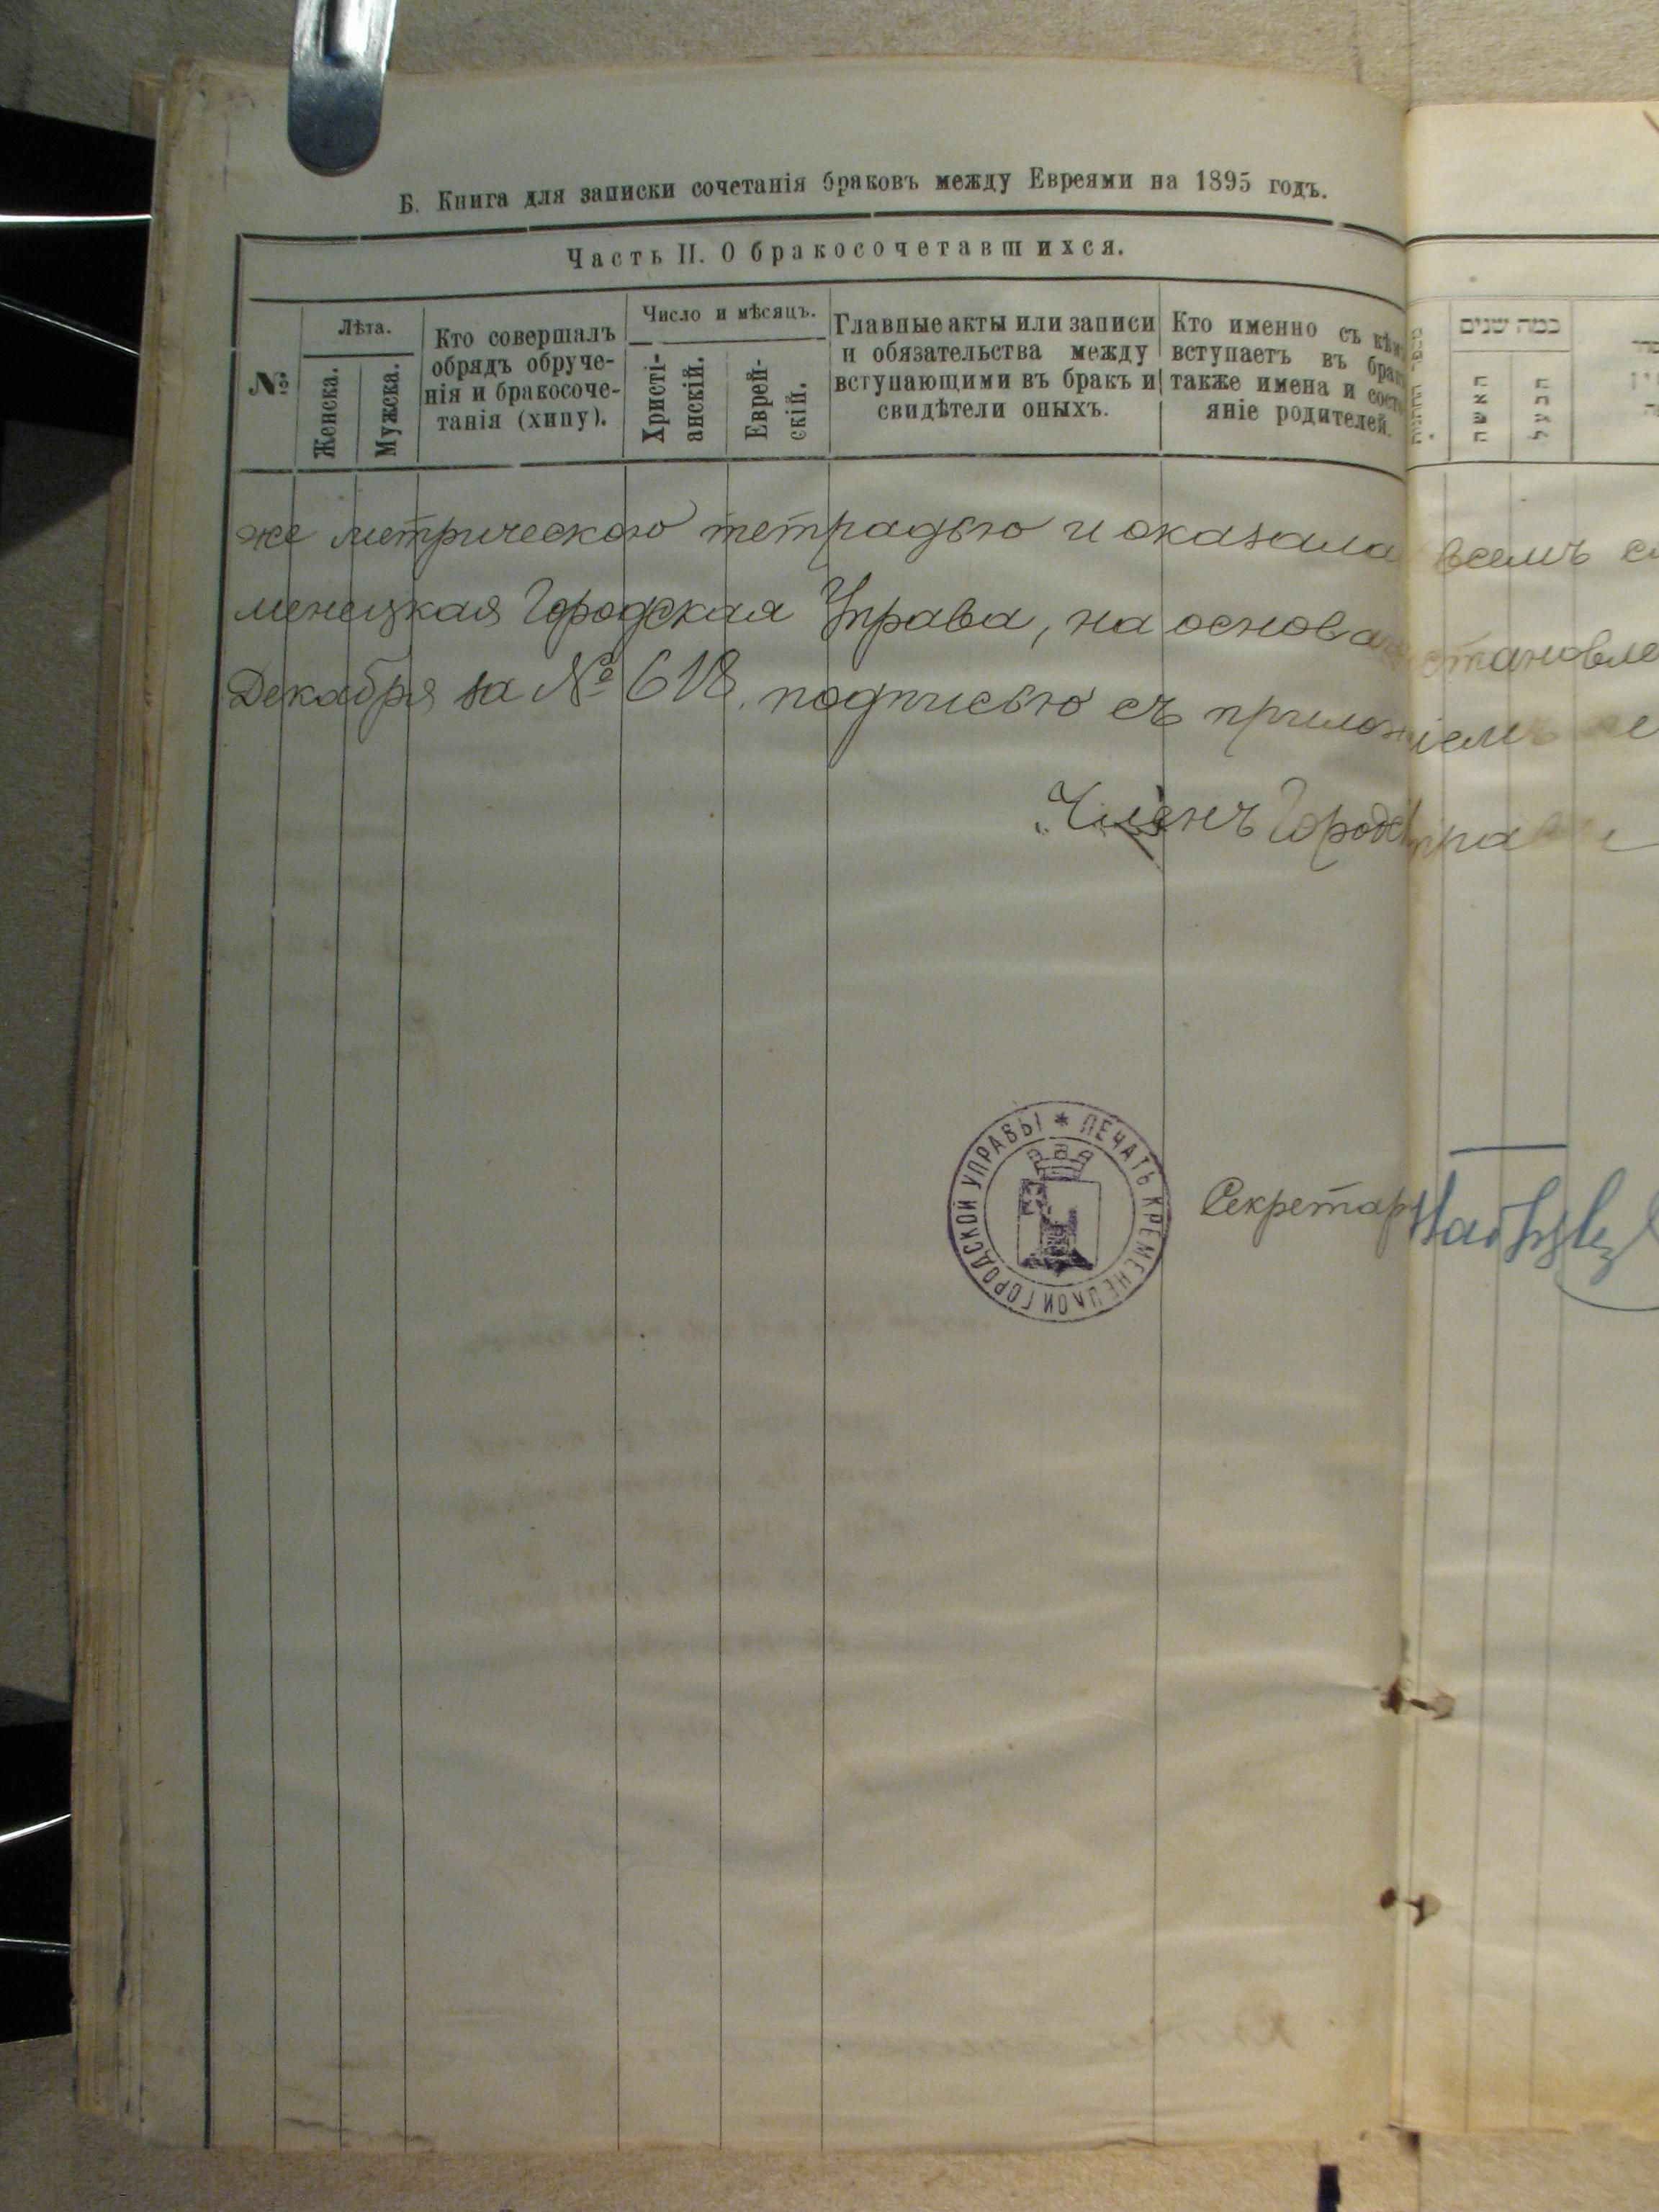 Б. Книга для записки сочетанія браковъ между Евреями на 1895 годъ.
Часть II. О бракосочетавшихся.
№
Лѣта.
Женска.
Мужска.
Кто совершалъ
обрядъ обруче-
нія и бракосоче-
танія (хипу).
Число и мѣсяцъ.
Христі-
анскій.
Еврей-
скій.
Главные акты или записи
и обязательства между
вступающими въ бракъ и
свидѣтели оныхъ.
Кто именно съ кѣмъ
вступаетъ въ бракъ
также имена и состо
яніе родителей.
כמה שנים
האשה
הבעל
же метрическою тетрадью и оказала всемъ
менецкая Городская Управа, на основа становле
Декабря за № 618. подписью съ прилож іемъ
Членъ Городс
ПЕЧАТЬ КРЕМЕНЕЦКОЙ ГОРОДСКОЙ УПРАВЫ
Секретарь